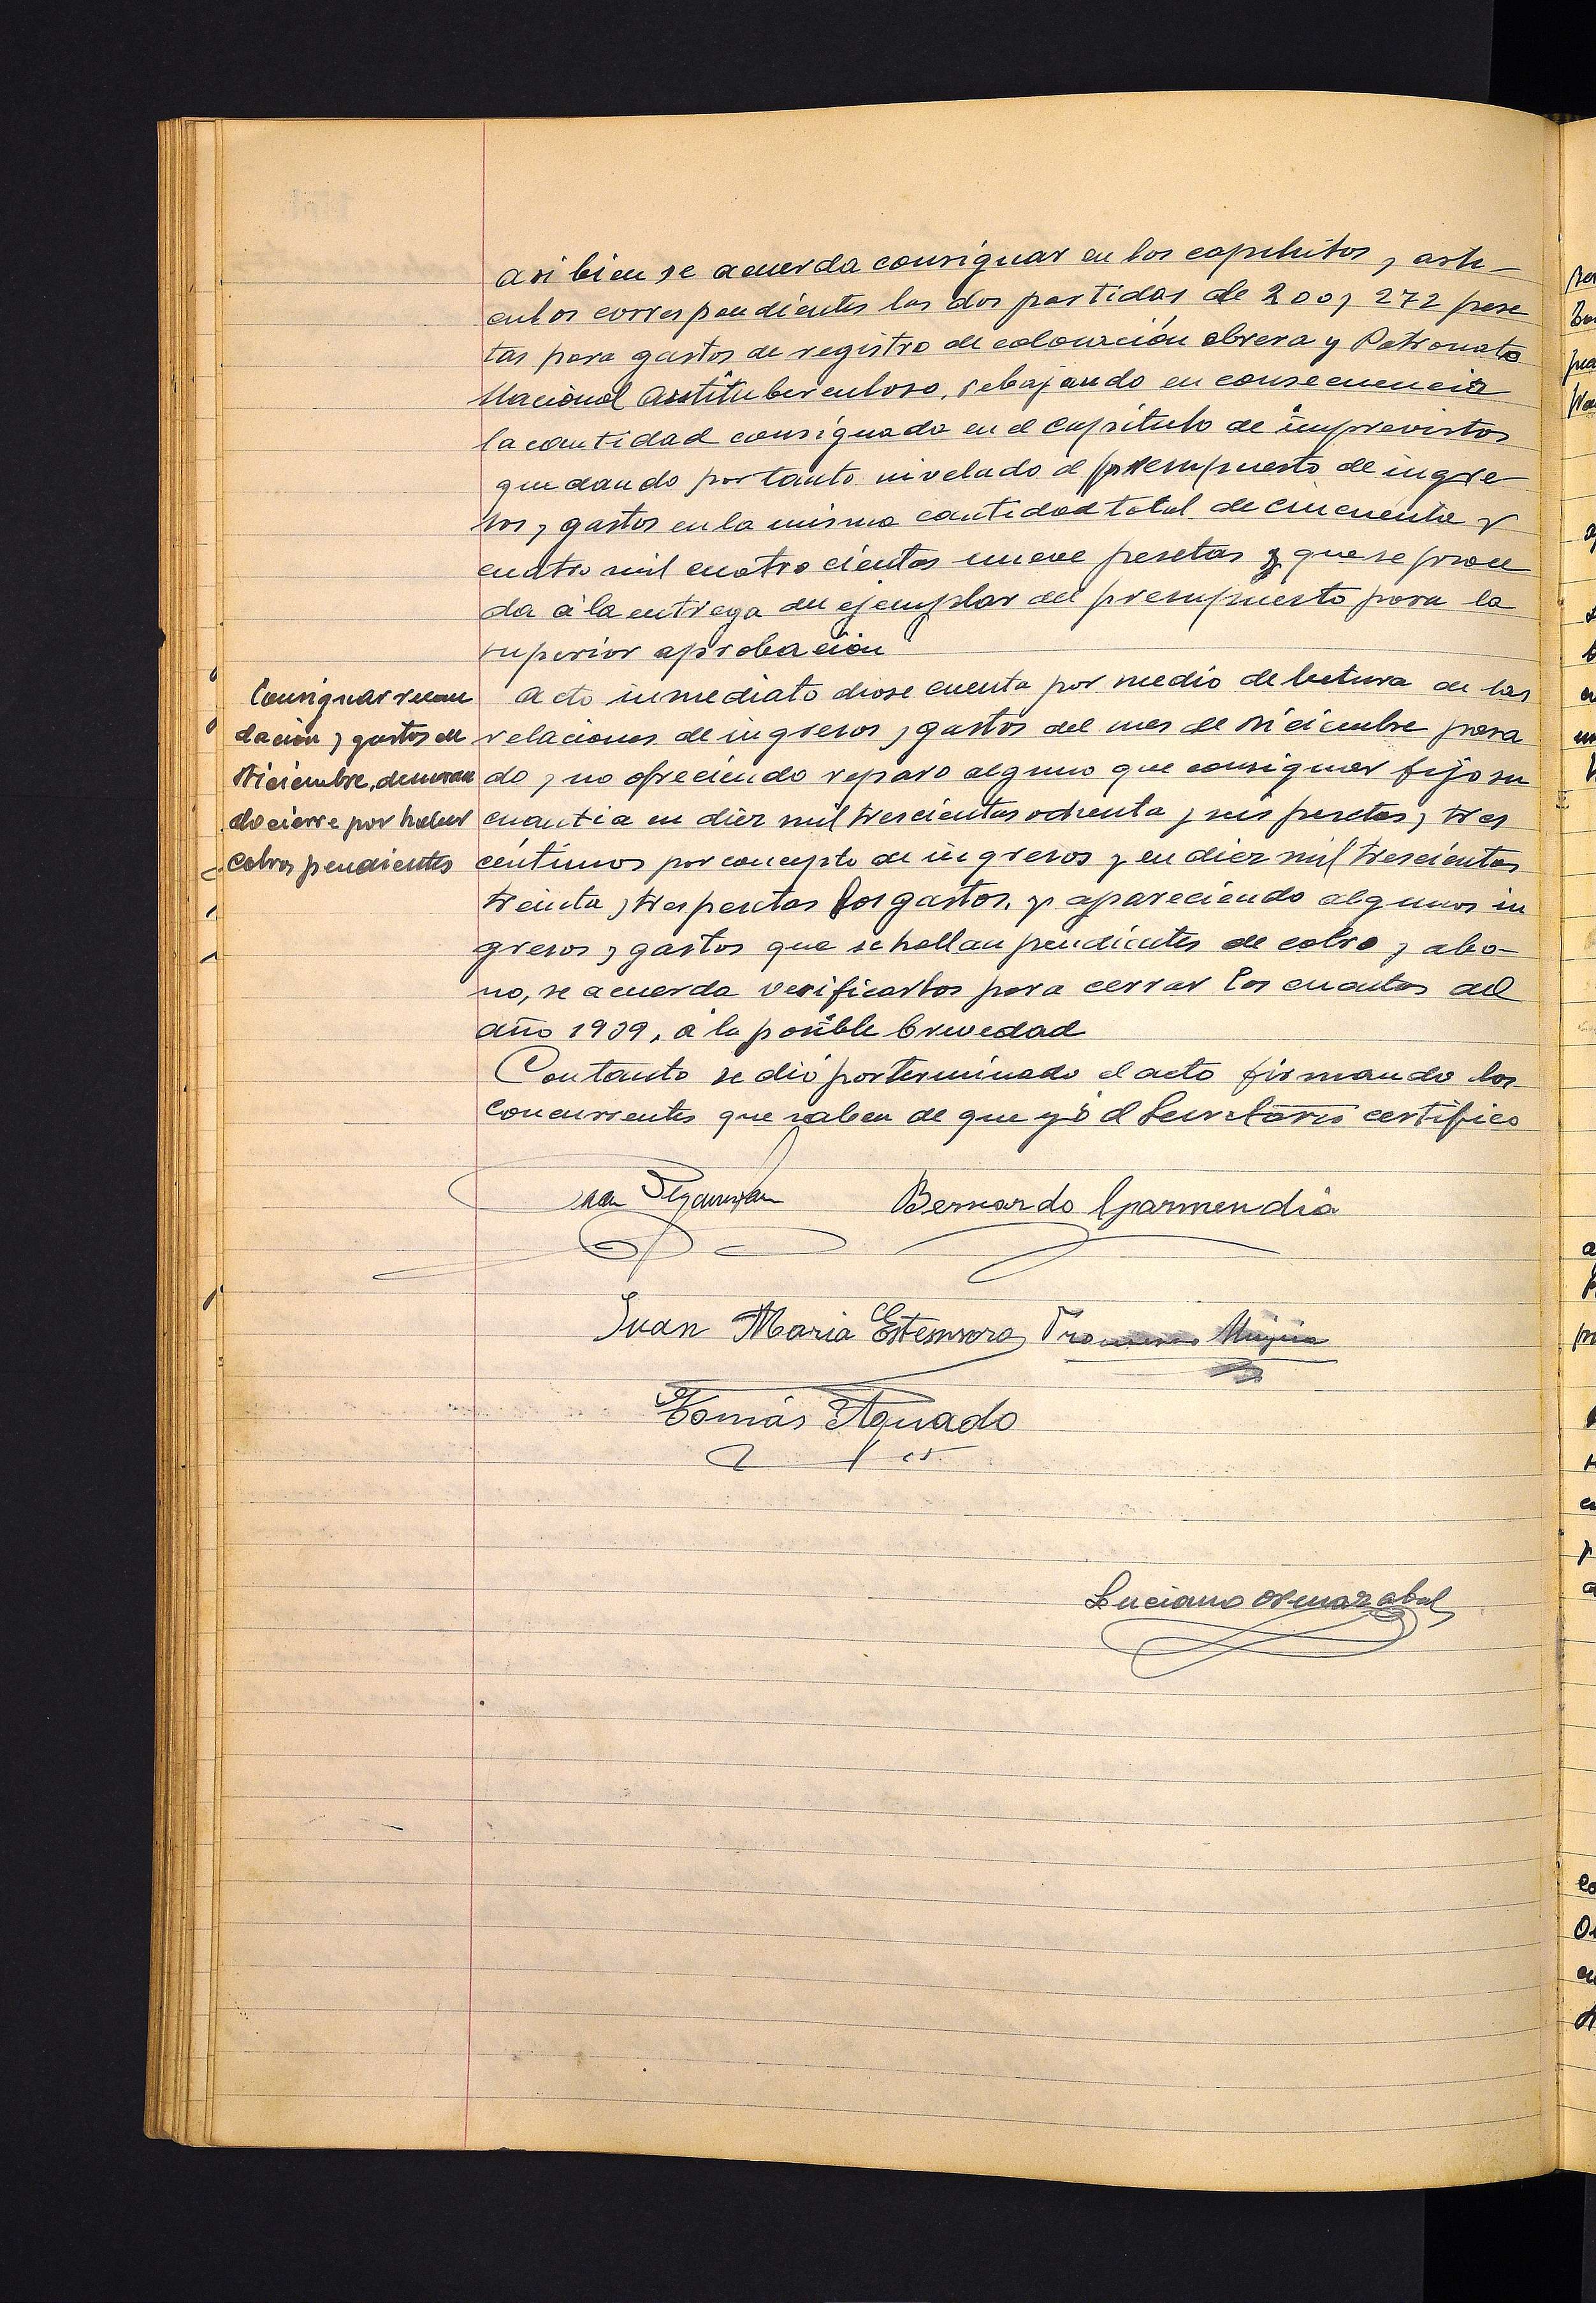 Asi bien se acuerda consignar en los capitulos y arti-
culos correspondientes las dos partidas de 200 y 272 pese
tas para gastos de registro de colocación obrera y Patronato
Nacional Antituberculoso, rebajando en consecuencia
la cantidad consignada en el Capitulo de imprevistos
quedando por tanto nivelado el presupuesto de ingre
sos y gastos en la misma cantidad total de cincuenta y
cuatro mil cuatrocientas nueve pesetas y que se proce
da á la entrega del ejemplar del presupuesto para la
superior aprobación
Consignar recau
dación y gastos de
Diciembre, demoran
do cierre por haber
cobros pendientes
Acto inmediato diose cuenta por medio de lectura de las
relaciones de ingresos y gastos del mes de Diciembre pasa
do y no ofreciendo reparo alguno que consignar fijo su
cuantia en diez mil trescientas ochenta y seis pesetas y tres
céntimos por concepto de ingresos y en diez mil trescientas
treinta y tres pesetas los gastos, y apareciendo algunos in
gresos y gastos que se hallan pendientes de cobro y abo-
no, se acuerda verificarlos para cerrar las cuentas del
año 1939, á la posible brevedad
Con tanto se dió por terminado el acto firmando los
concurrentes que saben de que yó el Secretario certifico
Bernardo Garmendia
Juan Maria Francisco Mugica
Tomás Aguado
Luciano Ormazabal